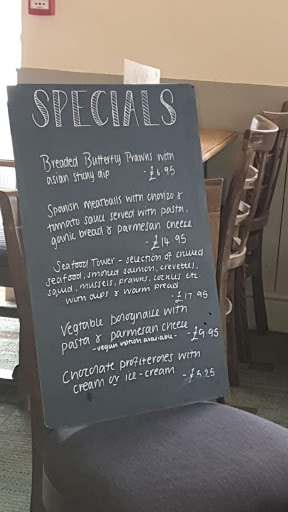 SPECIALS
Breaded Butterfly Prawns with
asian sticky dip
- £6.95
Spanish meatballs with chorizo &
tomato sauce served with pasta,
garlic bread & parmesan cheese
- £14.95
Seafood Tower - selection of chilled
seafood, smoked salmon, crevettes,
squid, mussels, prawns, cockles etc
with dips & warm bread
- £17.95
Vegtable bolognaise with
pasta & parmesan cheese
- vegan option available - - £9.95
Chocolate profiteroles with
cream or ice-cream - £5.25